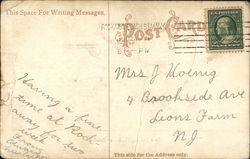 This Space For Writing Messages.
POST CARD
Mrs J Koenig
4 Brookside Ave
Lions Farm
N.J.
Having a fine
time at Rock
away for two
This side for the Address only.